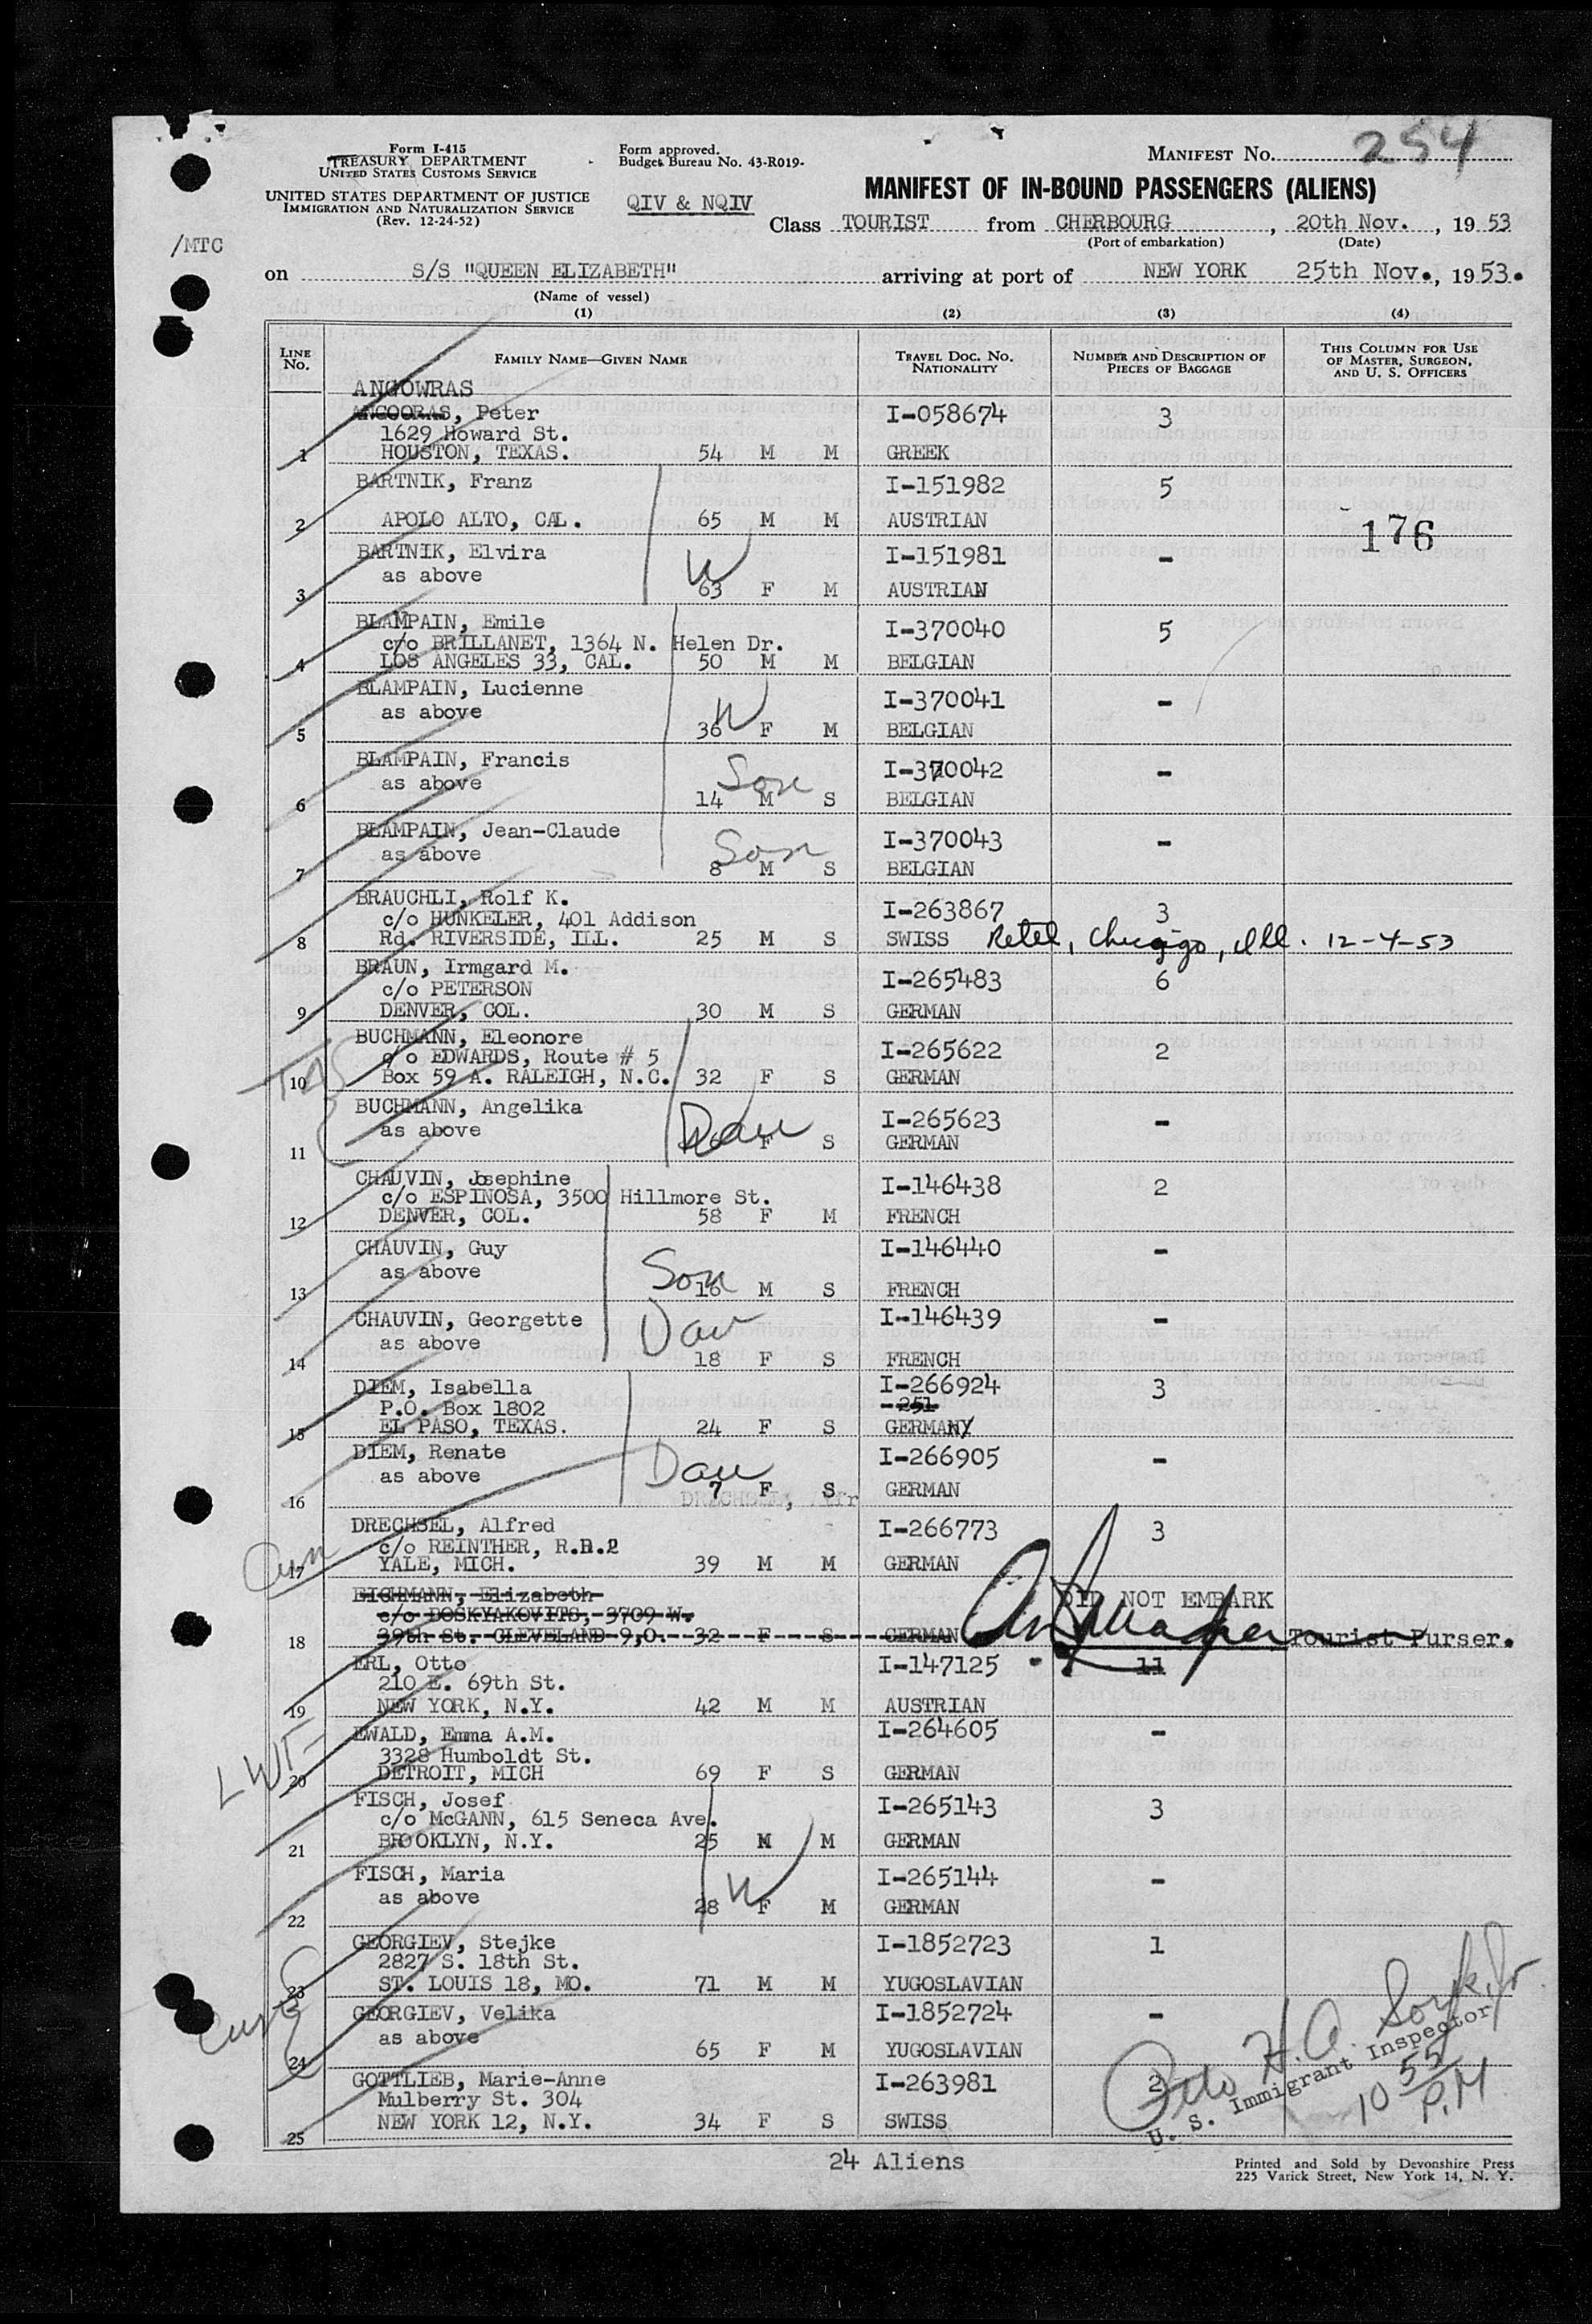 254
Form I-415
TREASURY DEPARTMENT
UNITED STATES CUSTOMS SERVICE
UNITED STATES DEPARTMENT OF JUSTICE
IMMIGRATION AND NATURALIZATION SERVICE
(Rev. 12-24-52)
/MTC
Form approved.
Budget Bureau No. 43-R019-
QIV & NQIV
MANIFEST NO.
MANIFEST OF IN-BOUND PASSENGERS (ALIENS)
Class TOURIST from CHERBOURG, 20th Nov., 19 53
(Port of embarkation) (Date)
on S/S "QUEEN ELIZABETH" arriving at port of NEW YORK 25th Nov., 1953.
(Name of vessel)
(1) (2) (3) (4)
LINE NO. FAMILY NAME—GIVEN NAME TRAVEL DOC. NO. NATIONALITY NUMBER AND DESCRIPTION OF PIECES OF BAGGAGE THIS COLUMN FOR USE OF MASTER, SURGEON, AND U. S. OFFICERS
ANGOWRAS
ANGOORAS, Peter I-058674 3
1629 Howard St.
1 HOUSTON, TEXAS. 54 M M GREEK
BARTNIK, Franz I-151982 5
2 APOLO ALTO, CAL. 65 M M AUSTRIAN
176
BARTNIK, Elvira I-151981 -
as above W
3 63 F M AUSTRIAN
BLAMPAIN, Emile I-370040 5
c/o BRILLANET, 1364 N. Helen Dr.
4 LOS ANGELES 33, CAL. 50 M M BELGIAN
BLAMPAIN, Lucienne I-370041 -
as above W
5 36 F M BELGIAN
BLAMPAIN, Francis I-370042 -
as above Son
6 14 M S BELGIAN
BLAMPAIN, Jean-Claude I-370043 -
as above Son
7 8 M S BELGIAN
BRAUCHLI, Rolf K. I-263867 3
c/o HUNKELER, 401 Addison
8 Rd. RIVERSIDE, ILL. 25 M S SWISS Chicago, Ill. 12-4-53
BRAUN, Irmgard M. I-265483 6
c/o PETERSON
9 DENVER, COL. 30 M S GERMAN
BUCHMANN, Eleonore I-265622 2
c/o EDWARDS, Route # 5
10 Box 59 A. RALEIGH, N.C. 32 F S GERMAN
BUCHMANN, Angelika I-265623 -
as above Dau
11 F S GERMAN
CHAUVIN, Josephine I-146438 2
c/o ESPINOSA, 3500 Hillmore St.
12 DENVER, COL. 58 F M FRENCH
CHAUVIN, Guy I-146440 -
as above Son
13 16 M S FRENCH
CHAUVIN, Georgette I-146439 -
as above Dau
14 18 F S FRENCH
DIEM, Isabella I-266924 3
P.O. Box 1802 -251
15 EL PASO, TEXAS. 24 F S GERMANY
DIEM, Renate I-266905 -
as above Dau
16 7 F S GERMAN
DRECHSEL, Alfred I-266773 3
c/o REINTHER, R.R.2
17 YALE, MICH. 39 M M GERMAN
EICHMANN, Elizabeth DID NOT EMBARK
c/o DOSKYAKOVITS, 3709 W.
18 39th St. CLEVELAND 9,O. 32 F S GERMAN Tourist Purser.
ERL, Otto I-147125 11
210 E. 69th St.
19 NEW YORK, N.Y. 42 M M AUSTRIAN
EWALD, Emma A.M. I-264605 -
3328 Humboldt St.
LWF
20 DETROIT, MICH 69 F S GERMAN
FISCH, Josef I-265143 3
c/o McGANN, 615 Seneca Ave.
21 BROOKLYN, N.Y. 25 M M GERMAN
FISCH, Maria I-265144 -
as above W
22 28 F M GERMAN
GEORGIEV, Stejke I-1852723 1
2827 S. 18th St.
23 ST. LOUIS 18, MO. 71 M M YUGOSLAVIAN
GEORGIEV, Velika I-1852724 -
as above
24 65 F M YUGOSLAVIAN
GOTTLIEB, Marie-Anne I-263981 2
Mulberry St. 304
25 NEW YORK 12, N.Y. 34 F S SWISS
U. S. Immigrant Inspector
10 55 P.M
24 Aliens
Printed and Sold by Devonshire Press
225 Varick Street, New York 14, N. Y.